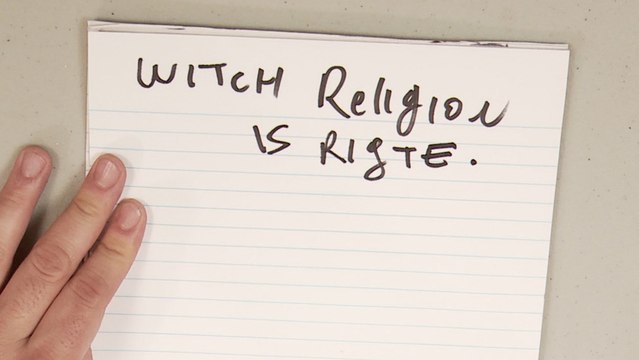 WITCH Religion
IS RIGTE.